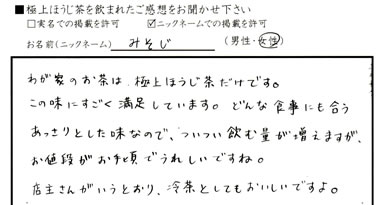 ■極上ほうじ茶を飲まれたご感想をお聞かせ下さい
□実名での掲載を許可 ☑ニックネームでの掲載を許可
お名前(ニックネーム) みそじ (男性・女性)
わが家のお茶は、極上ほうじ茶だけです。
この味にすごく満足しています。どんな食事にも合う
あっさりとした味なので、ついつい飲む量が増えますが、
お値段がお手頃でうれしいですね。
店主さんがいうとおり、冷茶としてもおいしいですよ。